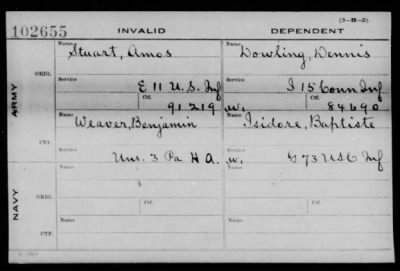 (3-H-3)
102655 INVALID DEPENDENT
Name Stuart, Amos Name Dowling, Dennis
ORIG.
Service E 11 U.S. Inf Service I 15 Conn Inf
ARMY
Ctf. 91219 W. Ctf. 84690
Name Weaver, Benjamin Name Isidore, Baptiste
CTF.
Service Uns. 3 Pa H A. Service W. G 73 USC Inf
Name Ctf. Name Ctf.
NAVY
ORIG.
Name Name
CTF.